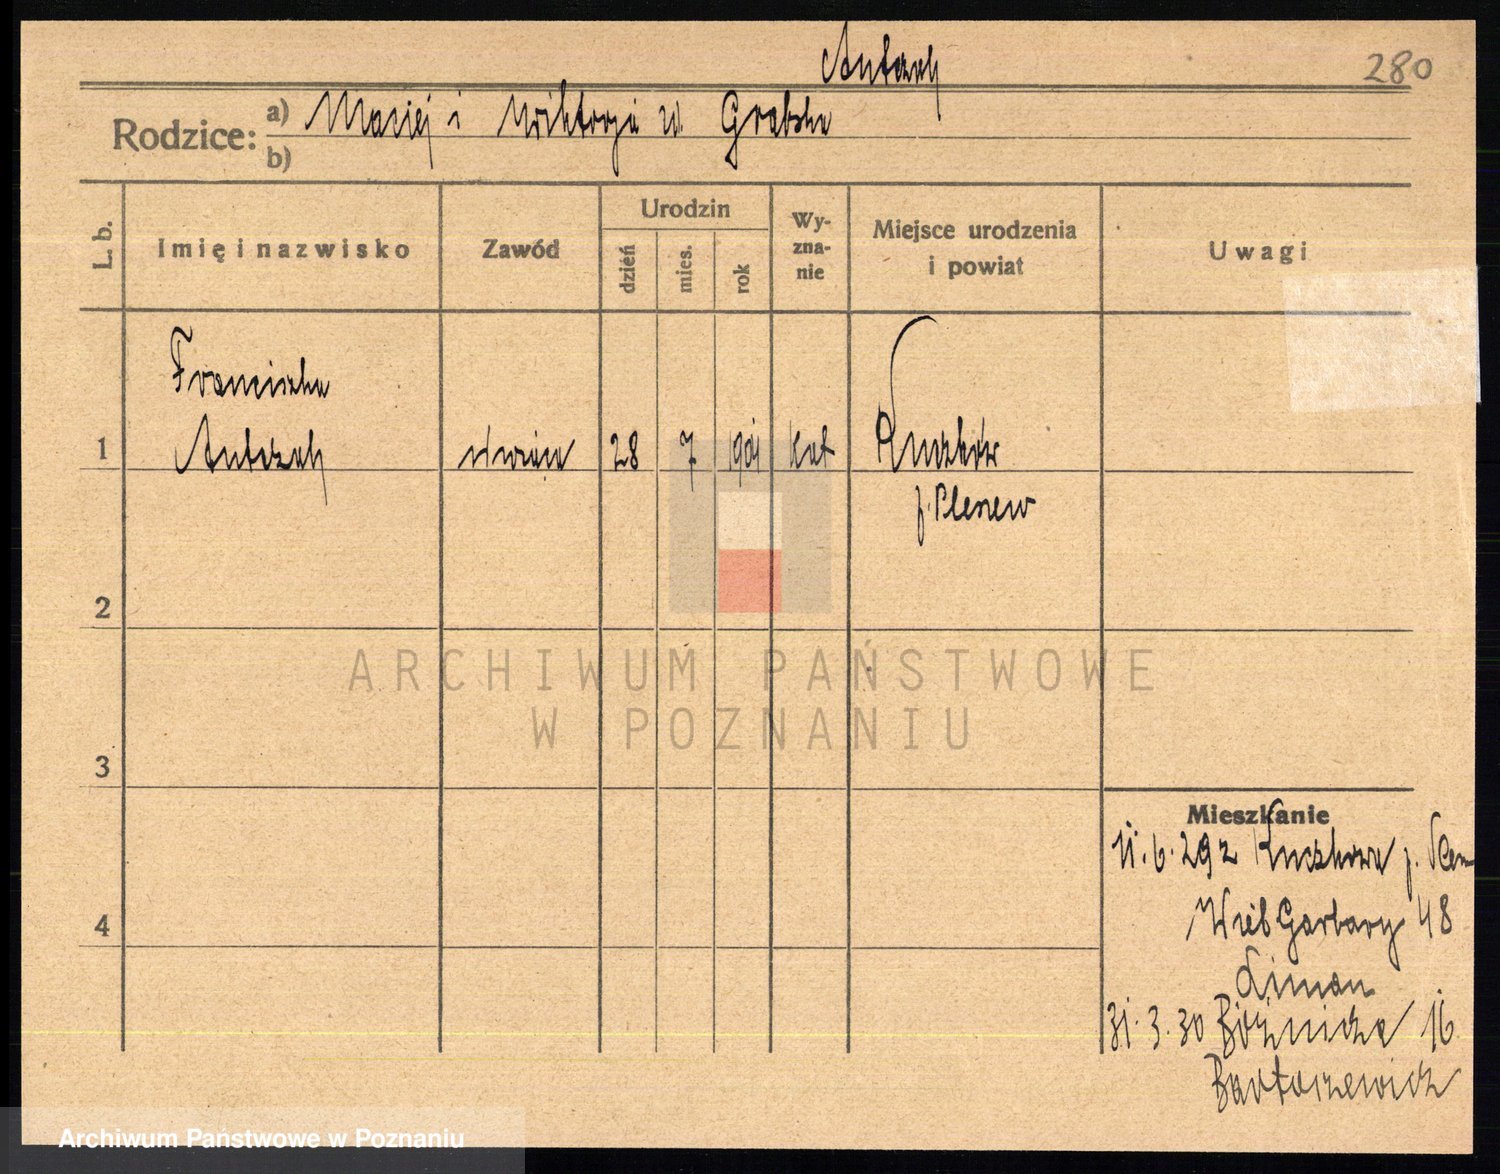 Antczak
280
Rodzice: a) Maciej i Wiktorja u. Grabska
b)
L. b. Imię i nazwisko Zawód Urodzin dzień mies. rok Wyznanie Miejsce urodzenia i powiat Uwagi
Franciszka
1 Antczak 28 7 1901 kat Kuczków
p. Pleszew
2
ARCHIWUM PAŃSTWOWE
W POZNANIU
3
Mieszkanie
11.6.29 z Kuczkowa p.
4 Garbary 48
Liman
31.3.30 Bóżnicza 16
Bartoszewicz
Archiwum Państwowe w Poznaniu